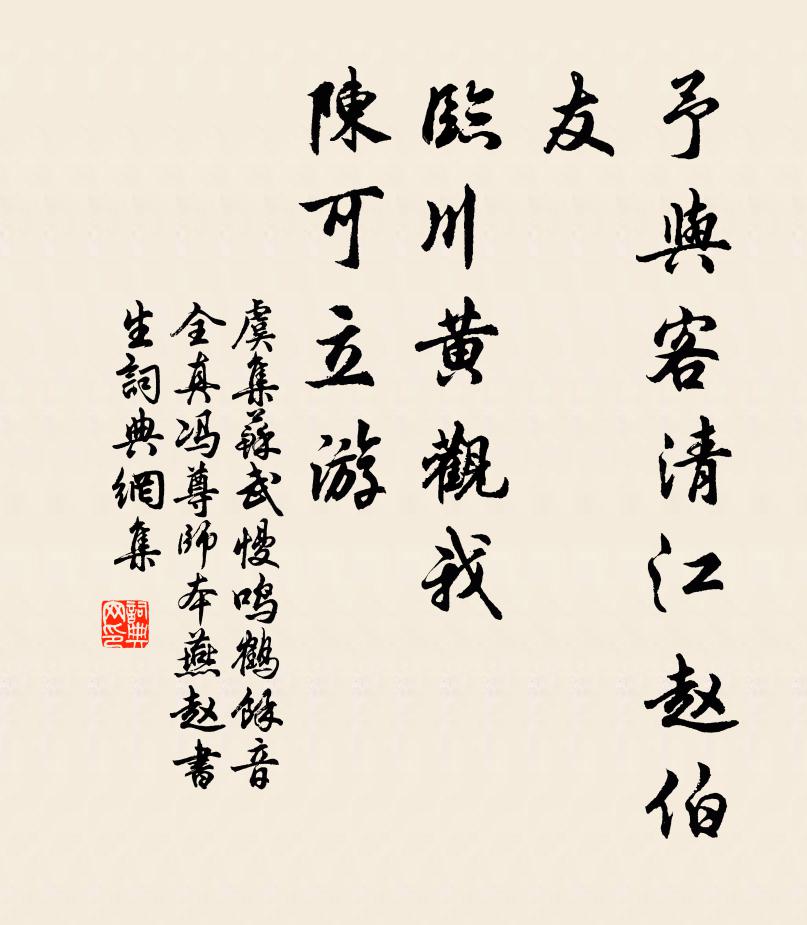 予與客清江赵伯
友
臨川黄觀我
陳可立游
虞集蘇武慢鸣鶴餘音
全真冯尊師本燕赵書
生詞典網集
詞典网印